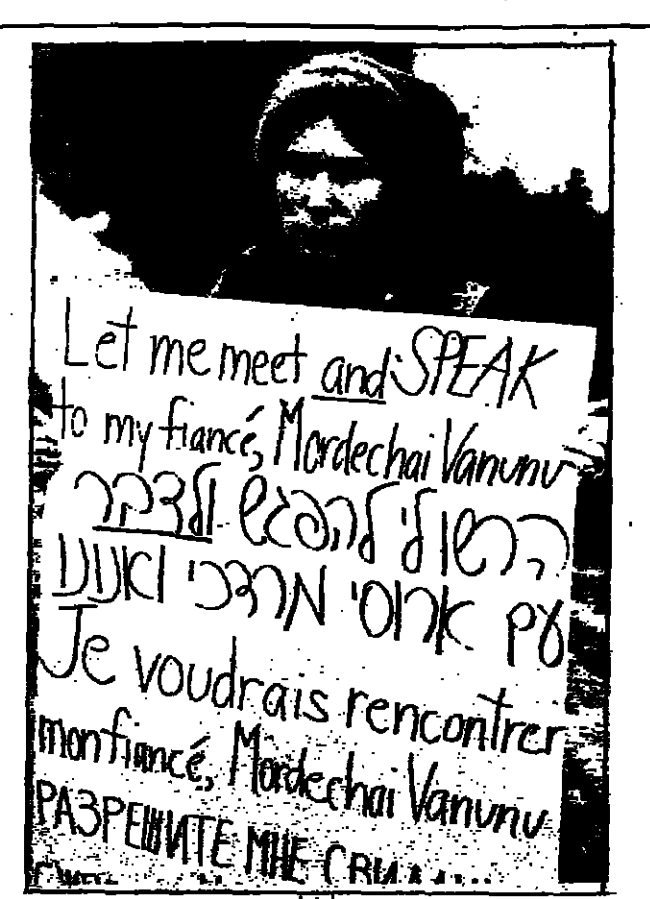 Let me meet and SPEAK
to my fiancé, Mordechai Vanunu
הרשו לי להפגש ולדבר
עם ארוסי מרדכי ואנונו
Je voudrais rencontrer
mon fiancé, Mordechai Vanunu
РАЗРЕШИТЕ МНЕ